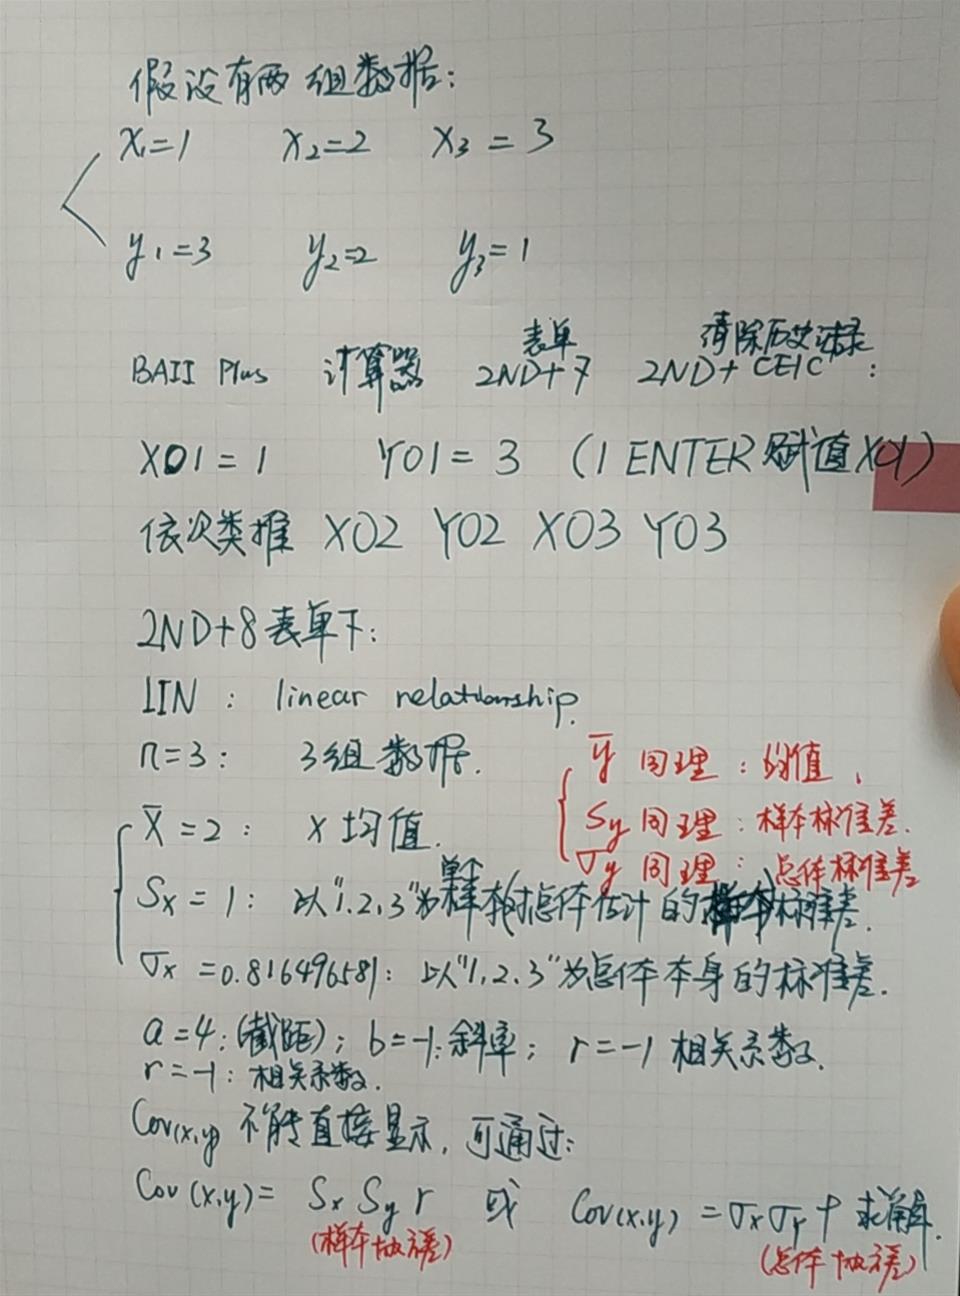 假设有两组数据:
x₁=1 x₂=2 x₃=3
y₁=3 y₂=2 y₃=1
表单 清除历史记录
BAII Plus 计算器 2ND+7 2ND+CE|C :
X01=1 Y01=3 (1 ENTER 赋值X01)
依次类推 X02 Y02 X03 Y03
2ND+8表单下:
LIN : linear relationship.
n=3: 3组数据.
ȳ 同理:均值,
x̄=2: x均值.
Sy 同理:样本标准差.
σy 同理:总体标准差
单个
Sx=1: 以"1.2.3"为样本(对总体估计的)标准差.
σx=0.816496581: 以"1,2,3"为总体本身的标准差.
a=4:(截距); b=-1:斜率; r=-1 相关系数.
r=-1: 相关系数.
Cov(x,y) 不能直接显示,可通过:
Cov(x,y)= Sx Sy r 或 Cov(x,y)=σxσy r 求解.
(样本协方差) (总体协方差)